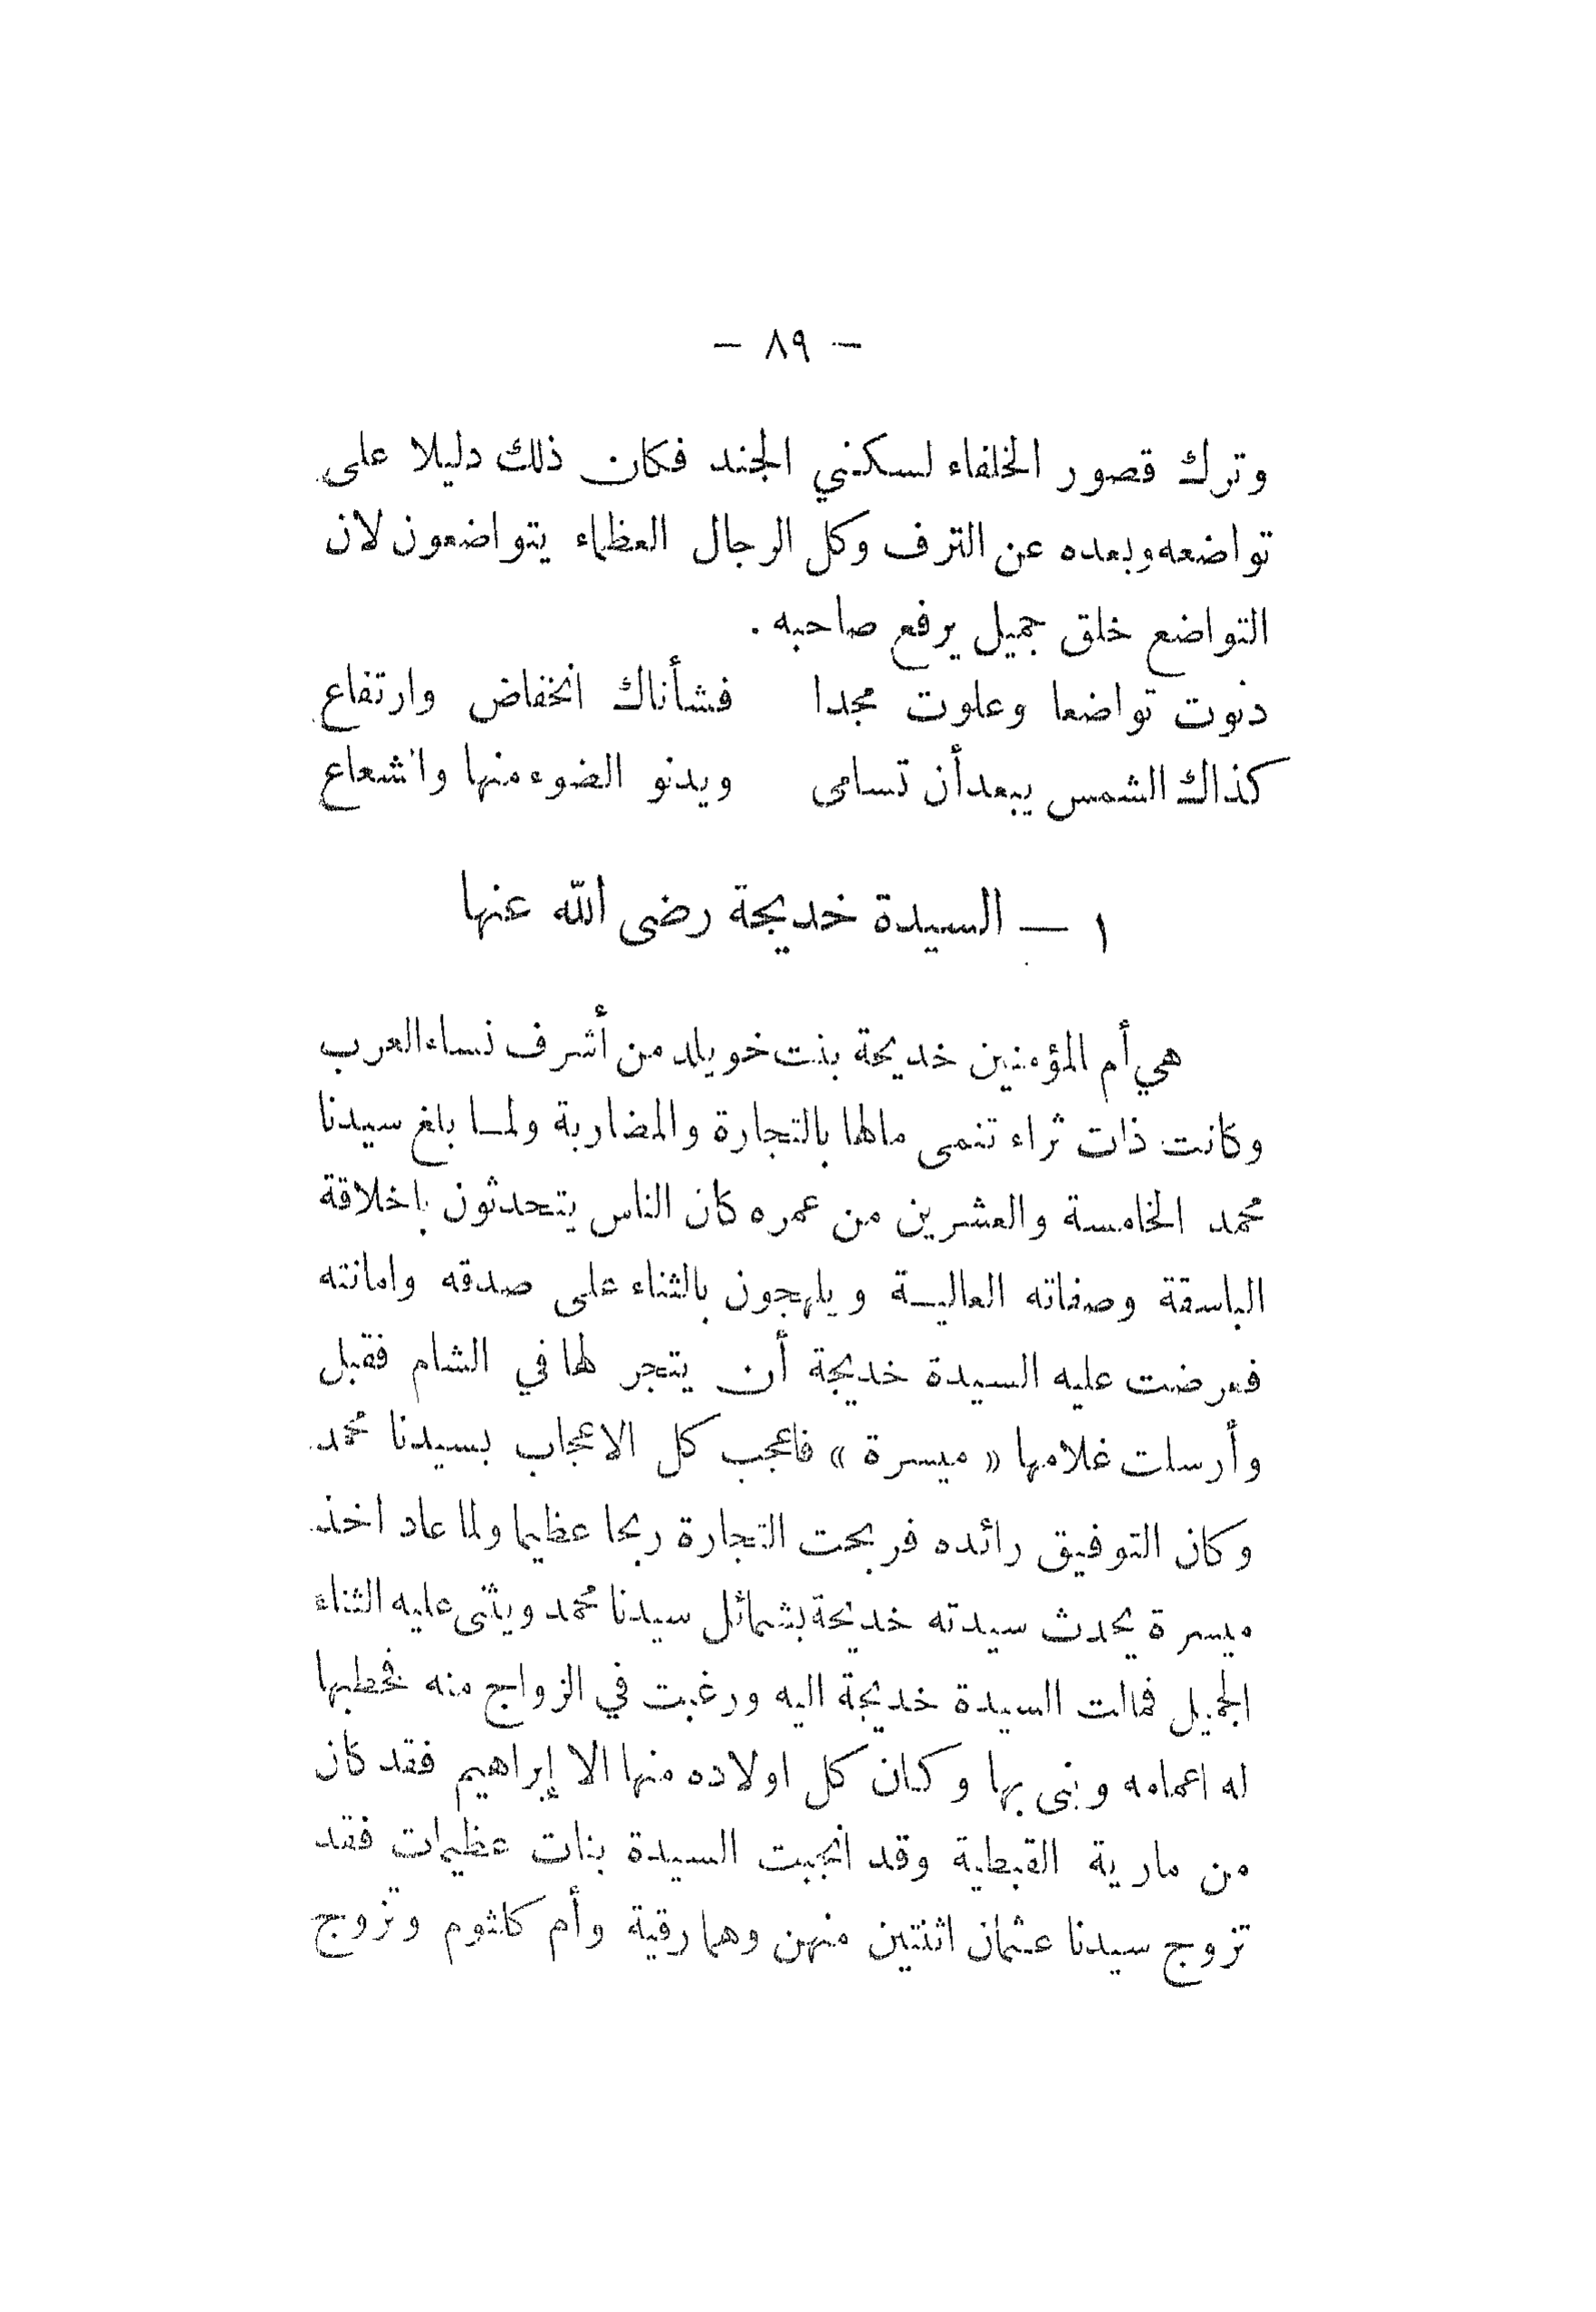 — ٨٩ —
وترك قصور الخلفاء لسكني الجند فكان ذلك دليلا على
تواضعه وبعده عن الترف وكل الرجال العظماء يتواضعون لان
التواضع خلق جميل يرفع صاحبه .
دنوت تواضعا وعلوت مجدا فشأناك انخفاض وارتفاع
كذاك الشمس يبعد أن تسامى ويدنو الضوء منها والشعاع
١ — السيدة خديجة رضى الله عنها
هي أم المؤمنين خديجة بنت خويلد من أشرف نساء العرب
وكانت ذات ثراء تنمى مالها بالتجارة والمضاربة ولما بلغ سيدنا
محمد الخامسة والعشرين من عمره كان الناس يتحدثون باخلاقة
الباسقة وصفاته العالية ويلهجون بالثناء على صدقه وامانته
فعرضت عليه السيدة خديجة أن يتجر لها في الشام فقبل
وأرسلت غلامها « ميسرة » فاعجب كل الاعجاب بسيدنا محمد
وكان التوفيق رائده فربحت التجارة ربحا عظيما ولما عاد اخذ
ميسرة يحدث سيدته خديجة بشمائل سيدنا محمد ويثنى عليه الثناء
الجميل فمالت السيدة خديجة اليه ورغبت في الزواج منه فخطبها
له اعمامه وبنى بها وكان كل اولاده منها الا إبراهيم فقد كان
من مارية القبطية وقد انجبت السيدة بنات عظيمات فقد
تزوج سيدنا عثمان اثنتين منهن وهما رقية وأم كلثوم وتزوج